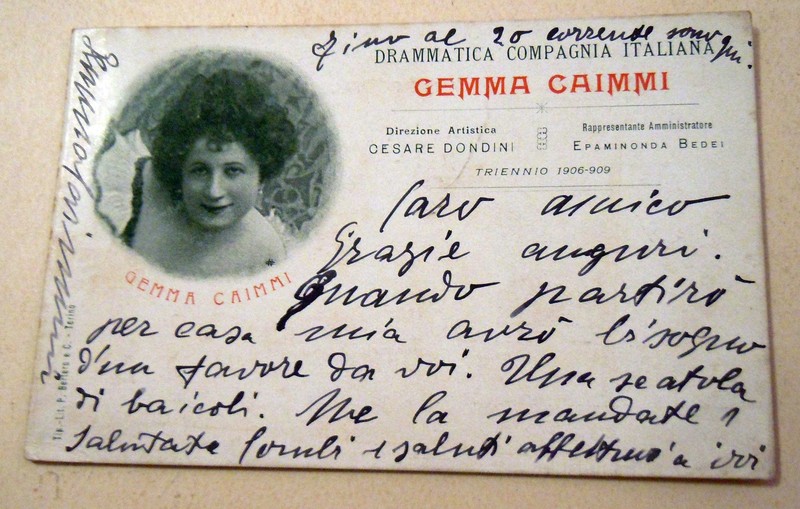 Fino al 20 corrente sono qui.
DRAMMATICA COMPAGNIA ITALIANA
GEMMA CAIMMI
Direzione Artistica
CESARE DONDINI
Rappresentante Amministratore
EPAMINONDA BEDEI
TRIENNIO 1906-909
GEMMA CAIMMI
Caro amico
Grazie auguri.
Quando partirò
per casa mia avrò bisogno
d'un favore da voi. Una scatola
di baicoli. Me la mandate?
Salutate e saluti a voi
Tip.-Lit. P. e C. - Torino